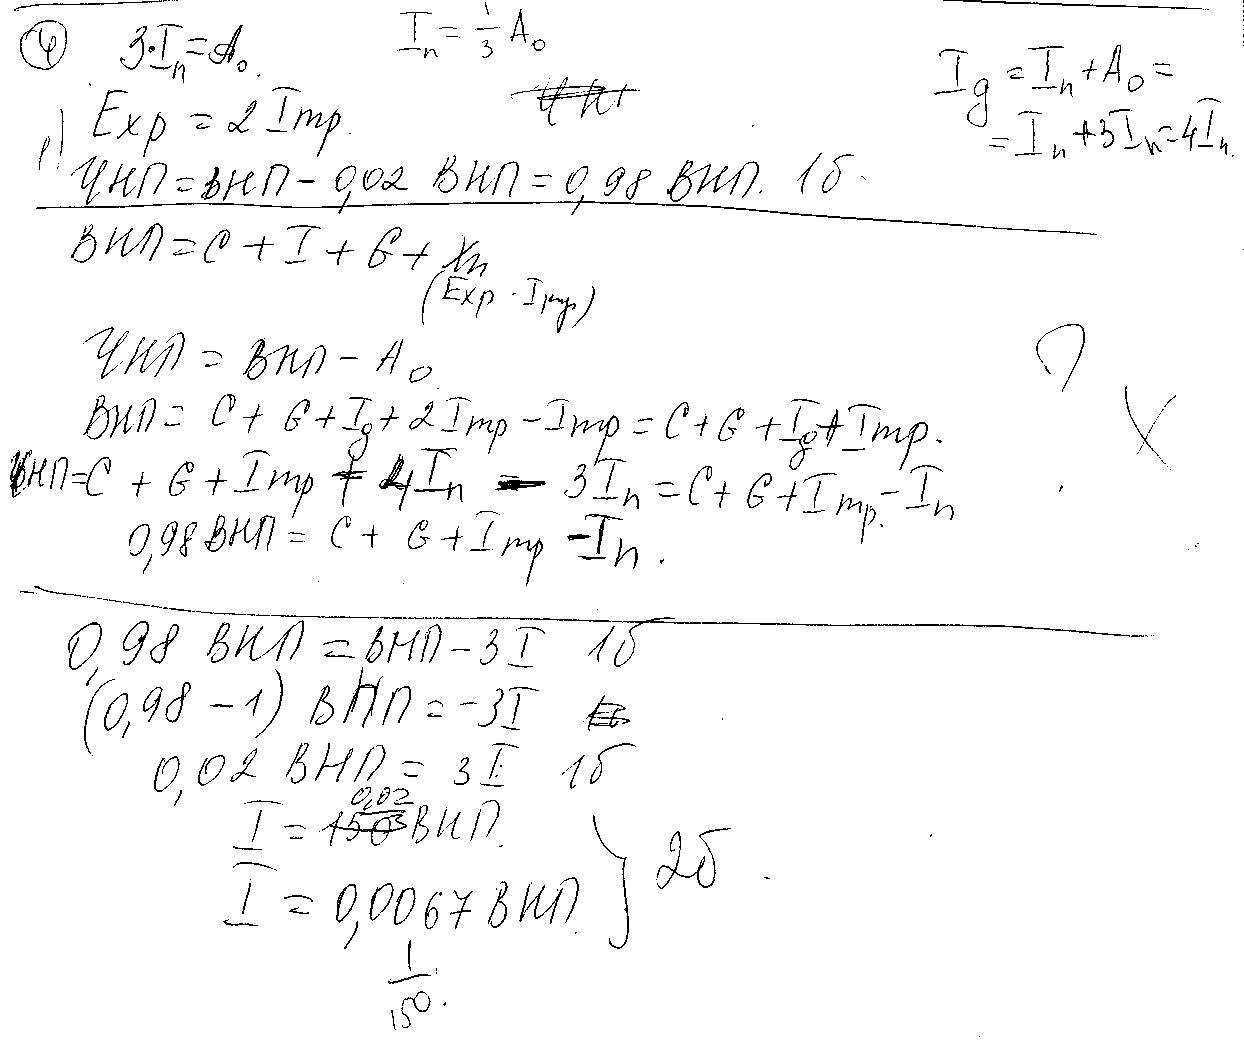 ④ 3·Iₙ = A₀ Iₙ = 1/3 A₀
I_g = Iₙ + A₀ =
= Iₙ + 3Iₙ = 4Iₙ
1) Exp = 2 Imp.
ЧНП = ВНП - 0,02 ВНП = 0,98 ВНП. 1б.
ВНП = C + I + G + Xn
(Exp - Imp)
ЧНП = ВНП - A₀
ВНП = C + G + I_g + 2 Imp - Imp = C + G + I_g + Imp.
ЧНП = C + G + Imp + 4Iₙ - 3Iₙ = C + G + Imp. - Iₙ
0,98 ВНП = C + G + Imp - Iₙ.
0,98 ВНП = ВНП - 3I 1б
(0,98 - 1) ВНП = -3I
0,02 ВНП = 3I 1б
I = 0,02/3 ВНП.
I = 0,0067 ВНП. } 2б.
1/150.